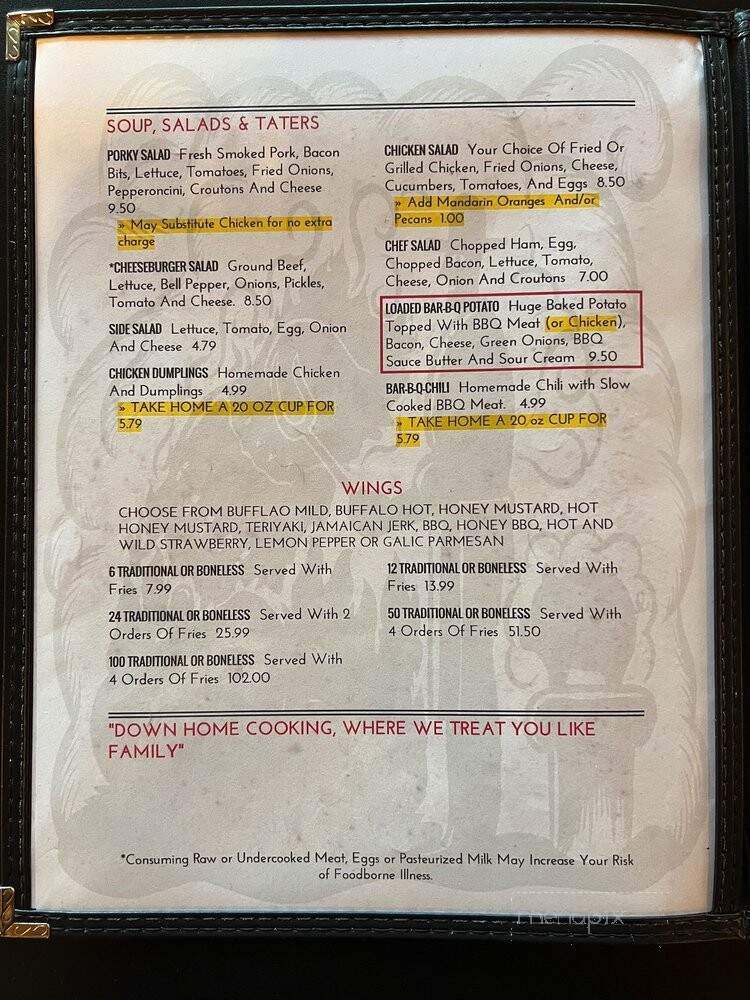 SOUP, SALADS & TATERS
PORKY SALAD Fresh Smoked Pork, Bacon
Bits, Lettuce, Tomatoes, Fried Onions,
Pepperoncini, Croutons And Cheese
9.50
» May Substitute Chicken for no extra
charge
*CHEESEBURGER SALAD Ground Beef,
Lettuce, Bell Pepper, Onions, Pickles,
Tomato And Cheese. 8.50
SIDE SALAD Lettuce, Tomato, Egg, Onion
And Cheese 4.79
CHICKEN DUMPLINGS Homemade Chicken
And Dumplings 4.99
» TAKE HOME A 20 OZ CUP FOR
5.79
CHICKEN SALAD Your Choice Of Fried Or
Grilled Chicken, Fried Onions, Cheese,
Cucumbers, Tomatoes, And Eggs 8.50
» Add Mandarin Oranges And/or
Pecans 1.00
CHEF SALAD Chopped Ham, Egg,
Chopped Bacon, Lettuce, Tomato,
Cheese, Onion And Croutons 7.00
LOADED BAR-B-Q POTATO Huge Baked Potato
Topped With BBQ Meat (or Chicken),
Bacon, Cheese, Green Onions, BBQ
Sauce Butter And Sour Cream 9.50
BAR-B-Q-CHILI Homemade Chili with Slow
Cooked BBQ Meat. 4.99
» TAKE HOME A 20 oz CUP FOR
5.79
WINGS
CHOOSE FROM BUFFLAO MILD, BUFFALO HOT, HONEY MUSTARD, HOT
HONEY MUSTARD, TERIYAKI, JAMAICAN JERK, BBQ, HONEY BBQ, HOT AND
WILD STRAWBERRY, LEMON PEPPER OR GALIC PARMESAN
6 TRADITIONAL OR BONELESS Served With
Fries 7.99
12 TRADITIONAL OR BONELESS Served With
Fries 13.99
24 TRADITIONAL OR BONELESS Served With 2
Orders Of Fries 25.99
50 TRADITIONAL OR BONELESS Served With
4 Orders Of Fries 51.50
100 TRADITIONAL OR BONELESS Served With
4 Orders Of Fries 102.00
"DOWN HOME COOKING, WHERE WE TREAT YOU LIKE
FAMILY"
*Consuming Raw or Undercooked Meat, Eggs or Pasteurized Milk May Increase Your Risk
of Foodborne Illness.
menupix